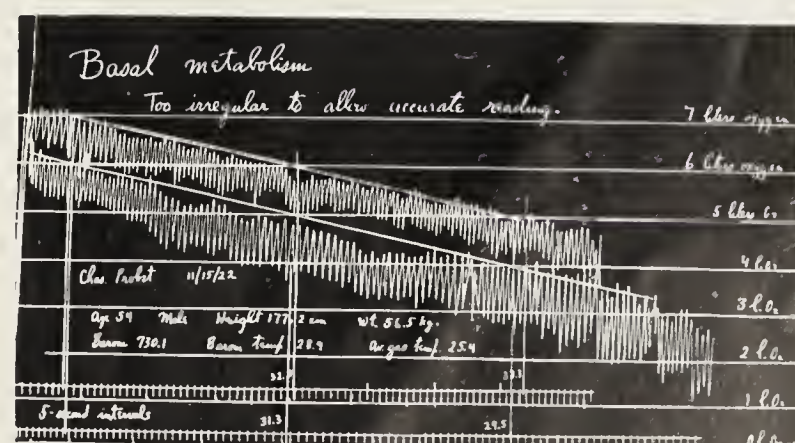 Basal metabolism
Too irregular to allow accurate reading.
7 liters oxygen
6 liters oxygen
5 liters O₂
4 l. O₂
Chas. Probst 11/15/22
3 l. O₂
Age 54 Male Height 177.2 cm wt. 56.5 kg.
Barom 730.1 Barom temp. 28.9 Av. gas temp. 25.4
2 l. O₂
1 l. O₂
5-second intervals
31.3 29.5
0 l. O₂